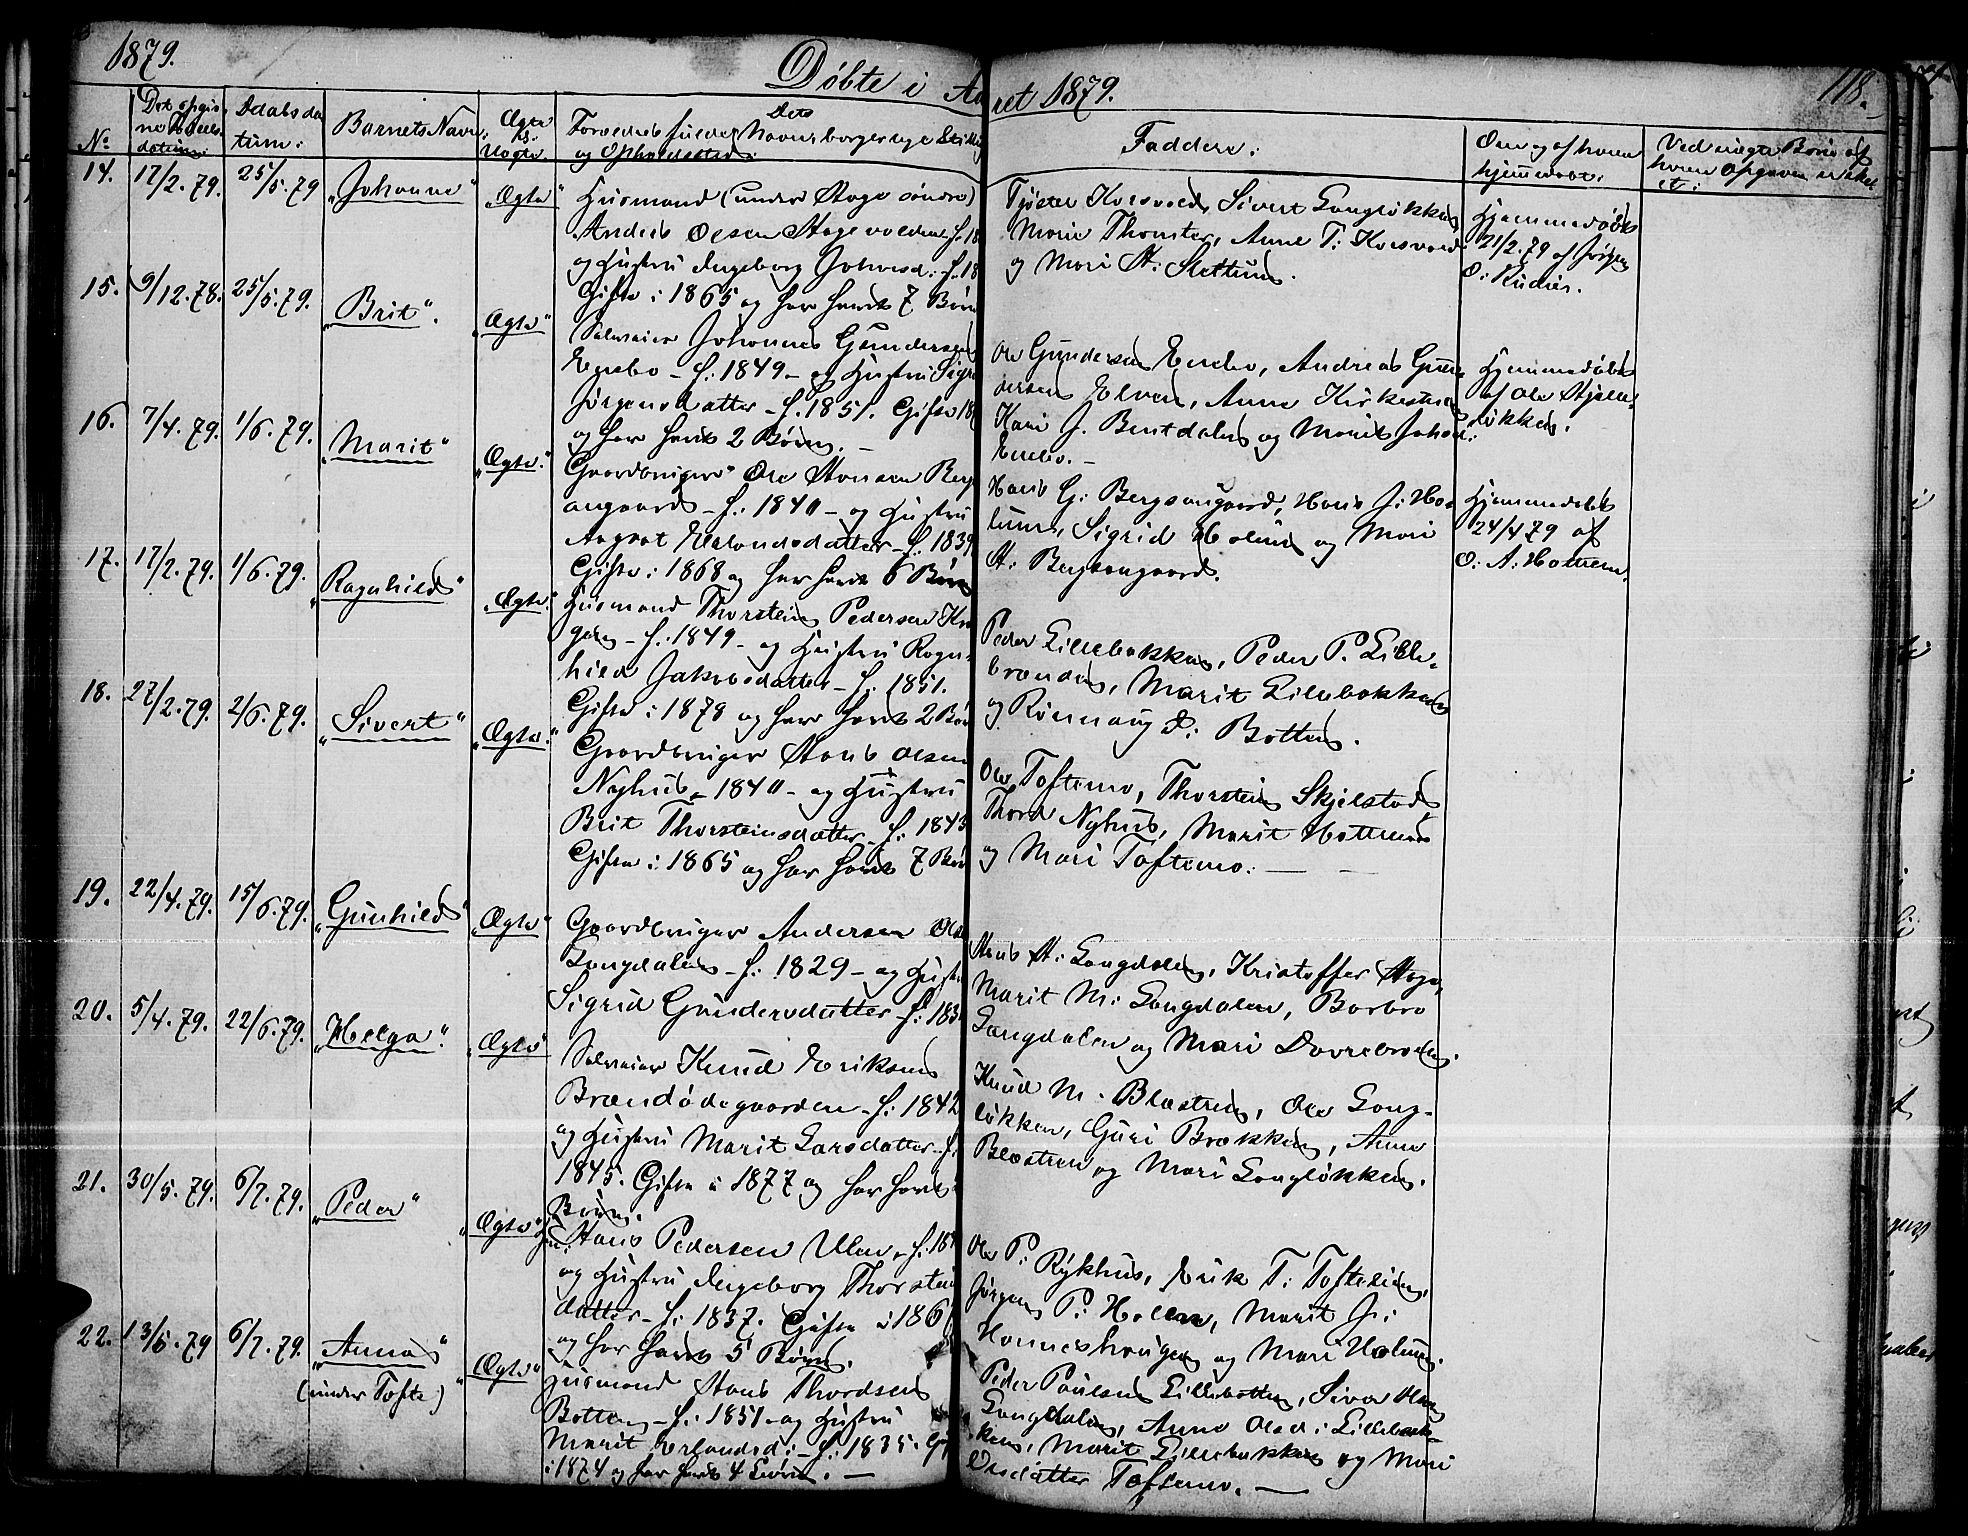 1879.
Døbte i Aaret 1879.
118.
No
Det opgivne Fødselsdatum:
Daabsdatum:
Barnets Navn.
Ægte ell: Uægte.
Forældres fulde Navne borgerlige Stilling og Opholdssted:
Faddere:
Om og af hvem hjemmedøbt:
Ved uægte Børn af hvem Opgaven er skeet:
14. 17/2. 79. 25/5. 79 „Johanne“ „Ægte“
Husmand (under Stage søndre)
Anders Olsen Stagevolden f. 18
og Hustru Ingeborg Johnsd: f. 18
Gifte i 1865 og har havt 7 Børn
Tjøster Korsvold, Sivert Langløkken
Marie Thomster, Anne T: Korsvold
og Mari H: Slettum.
Hjemmedøbt
21/2. 79 af Jørgen
O: Rudier.
15. 9/12. 78. 25/5. 79. „Brit“. „Ægte“
Selveier Johannes Gundersen
Enebo - f. 1849 - og Hustru Sigri
Jørgensdatter - f. 1851. Gifte 18
og har havt 2 Børn. -
Ole Gundersen Enebo, Andreas Gun-
dersen Elven, Anne Kirkestuen
Kari J. Bentdalen og Marit Johnsd:
Enebo. -
Hjemmedøbt
af Ole Stjelløkken.
16. 7/4. 79. 1/6. 79. „Marit“ „Ægte.“
Gaardbruger Ole Hansen Berg
angaard - f. 1840 - og Hustru
Aagot Erlandsdatter - f. 1839
Gifte i 1868 og har havt 6 Børn
Hans G: Bergsangaard, Hans J: Ho-
lum, Sigrid Holum og Mari
H: Bergsangaard.
Hjemmedøbt
24/4 79 af
O: A: Holmen.
17. 17/2. 79. 1/6. 79. „Ragnhild“ „Ægte.“
Husmand Thorstein Pedersen
f. 1849 - og Hustru Ragn-
hild Jakobsdatter - f. 1851.
Gifte i 1878 og har havt 2 Børn
Peder Lillebakken, Peder P. Lille-
braenden, Marit Lillebakken
og Rønnaug P: Botten.
18. 27/2. 79. 2/6. 79. „Sivert“ „Ægte.“
Gaardbruger Hans Olsen
Nyhus - 1840 - og Hustru
Brit Thorsteinsdatter - f. 1843
Gifte i 1865 og har havt 7 Børn
Ole Toftemo, Thorstein Skjelstad
Thord Nyhus, Marit Holmen
og Mari Toftemo. -
19. 22/4. 79. 15/6. 79. „Gunhild“ „Ægte“
Gaardbruger Andersen Ols
Langdalen - f. 1829 - og Hustru
Sigrid Gundersdatter - f. 183
Hans H: Langdalen, Kristoffer Hage,
Marit M: Langdalen, Barbro
Langdalen og Mari Dovrebraden.
20. 5/4. 79. 22/6. 79. „Helga“. „Ægte“
Selveier Knud Eriksen
Brændødegaarden - f. 1842
og Hustru Marit Larsdatter - f.
1845. Gifte i 1877 og har havt
Børn.
Knud M. Blæstren, Ole Lang-
løkken, Guri Brækken, Anne
Blæstren og Mari Langløkken.
21. 30/5. 79. 6/7. 79. „Peder“ „Ægte“
Hans Pedersen Ulen - f. 18
og Hustru Ingeborg Thorstein
datter - f. 1837. Gifte i 186
og har havt 5 Børn.
Ole P: Rykhus, Erik T: Toftelien,
Jørgen P: Holen, Marit J:
Honneshaugen og Mari Holum.
22. 13/5. 79 6/7. 79. „Anna“ (under Tofte) „Ægte“
Husmand Hans Thordsen
Botten - f. 1851 - og Hustru
Marit Erlandsd: - f. 1835. Gift
i 1874 og har havt 4 Børn. -
Peder Paulsen Lillebotten, Siver Olsen
Langdalen, Anne Olsd: Lillebak-
ken, Marit Lillebakken og Mari
Olsdatter Toftemo. -